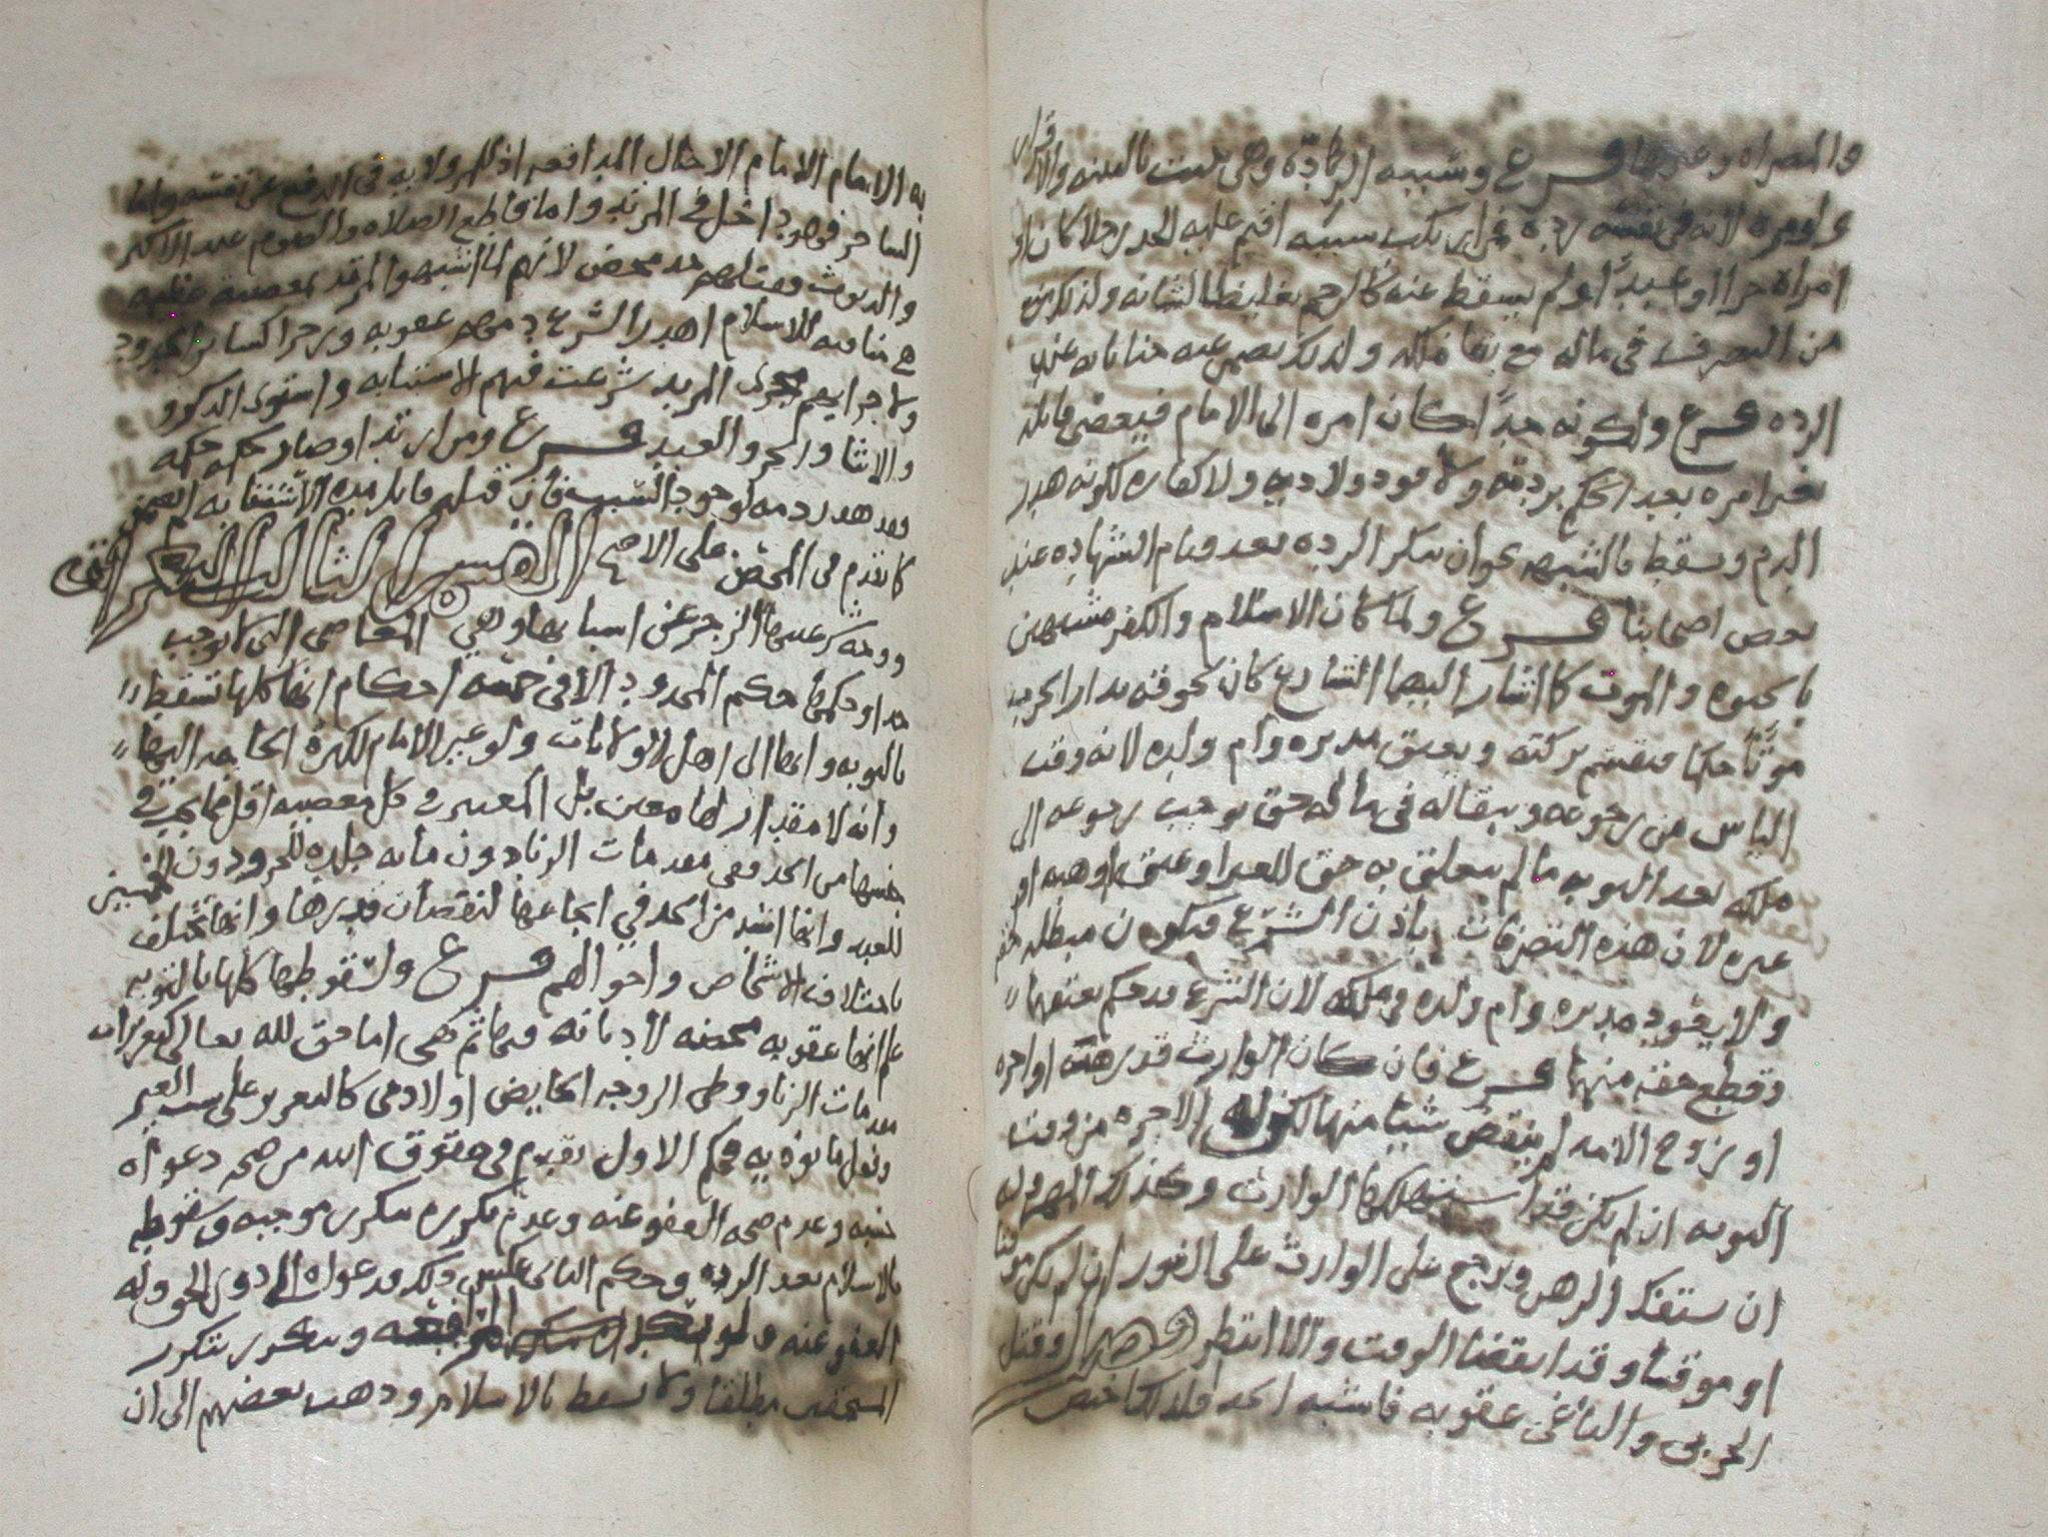 والمصراه وغيرها فرع وسببه الرده وهى تثبت بالبينه والاقرار
ولو مره لانه فى نفسه رده فمن ارتكب سببه اقيم عليه الحد رجلا كان او
امراه حرا او عبدًا ولم يسقط عنه كالرجم تغليظا لشانه ولذلك
من التصرف فى ماله مع بقا ملكه ولذلك عنه جناياته
الرده فرع ولكونه حدًا كان امره الى الامام فيعصى قاتله
بغير امره بعد الحكم بردته ولا قود ولا ديه ولا كفاره لكونه هدر
الدم ويسقط بالشبهه نحو ان ينكر الرده بعد قيام الشهاده عند
بعض اصحابنا فرع ولما كان الاسلام والكفر مشبهين
بالحيوه والموت كما اشار اليهما الشارع كان لحوقه بدار الحرب
موتًا حكما فيقسم تركته ويعتق مدبره وام ولده لانه وقت
الياس من رجوعه وبقا له فى ماله حق يوجب رجوعه الى
ملكه بعد التوبه ما لم يتعلق به حق للغير او عتق او هبه او
غيره لان هذه التصرفات باذن الشرع فيكون مبطله حقه
ولا يعود مدبره وام ولده فى ملكه لان الشرع قد حكم بعتقهما
وقطع حقه منهما فرع فان كان الوارث قد رهنه او اجره
او زوج الامه لم ينقض شيا منها لكن له الاجره من وقت
التوبه ان لم يكن قد استهلكها الوارث وكذلك المهر وله
ان يستفك الرهن ويرجع على الوارث على الفور ان لم يكن موقتا
او موقتا وقد انقضا الوقت والا انتظر فصل وقتل
الحربى والباغى عقوبه فاشبه الحد فلذلك اختص
به الامام الا حال المدافعه اذ لكل ولايه فى الدفع عن نفسه واما
الساحر فهو داخل فى المرتد واما قاطع الصلاه والصوم عند الاكثر
والديوث فقتلهم حد محض لانهم لما اشبهوا المرتد بمعصيه عظيمه
هى منافيه للاسلام اهدر الشرع دمهم عقوبه وزجرا كساير الحدود
ولاجرايهم مجرى المرتد شرعت فيهم الاستتابه واستوى الذكور
والاناث والحر والعبد فرع ومن ارتد او صار حكمه حكمه
فقد هدر دمه لوجود السبب فان قبله قاتل مده الاستتابه لم يضمن
كما تقدم فى المحصن على الاصح القسم الثالث التعزيرات
ووجه شرعيتها الزجر عن اسبابها وهى المعاصى التى لا توجب
حدا وحكمها حكم الحدود الا فى خمسه احكام انها كلها تسقط
بالتوبه وانها الى اهل الولايات ولو غير الامام لكثره الحاجه اليها
وانه لا مقدار لها معين بل المعتبر فى كل معصيه اقل مما يجب فى
جنسها من الحد ففى مقدمات الزنا دون مائه جلده للحر ودون الخمسين
للعبد وانها اشد من الحد فى ايجاعها لنقصان قدرها وانها تختلف
باختلاف الاشخاص واحوالهم فرع ولسقوطها كلها بالتوبه
علم انها عقوبه محضه لا ديانه فيها ثم هى اما حق لله تعالى كتعزيرات
مقدمات الزنا ووطى الزوجه الحايض او لادمى كالتعزير على سب الغير
وفعل ما يوذيه فحكم الاول تقدم فى حقوق الله من صحه دعواه
حسبه وعدم صحه العفو عنه وعدم تكرره بتكرر موجبه وسقوطه
بالاسلام بعد الرده وحكم الثانى عكس ذلك فدعواه الى ذوى الحق وله
العفو عنه ولو بعد المرافعه ويتكرر بتكرر
المستحقين مطلقا ولا يسقط بالاسلام وذهب بعضهم الى ان